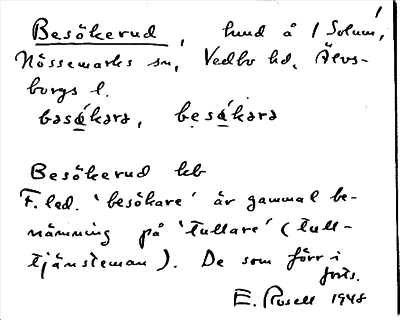 Besökerud, hund å / Solum,
Nössemarks sn, Vedbo hd. Älvs-
borgs l.
bəsø̀kərə, bẹsø̀kərə
Besökerud hb
F. led. 'besökare' är gammal be-
nämning på 'tullare' (tull-
tjänsteman). De som förr i
forts.
E. Rosell 1948